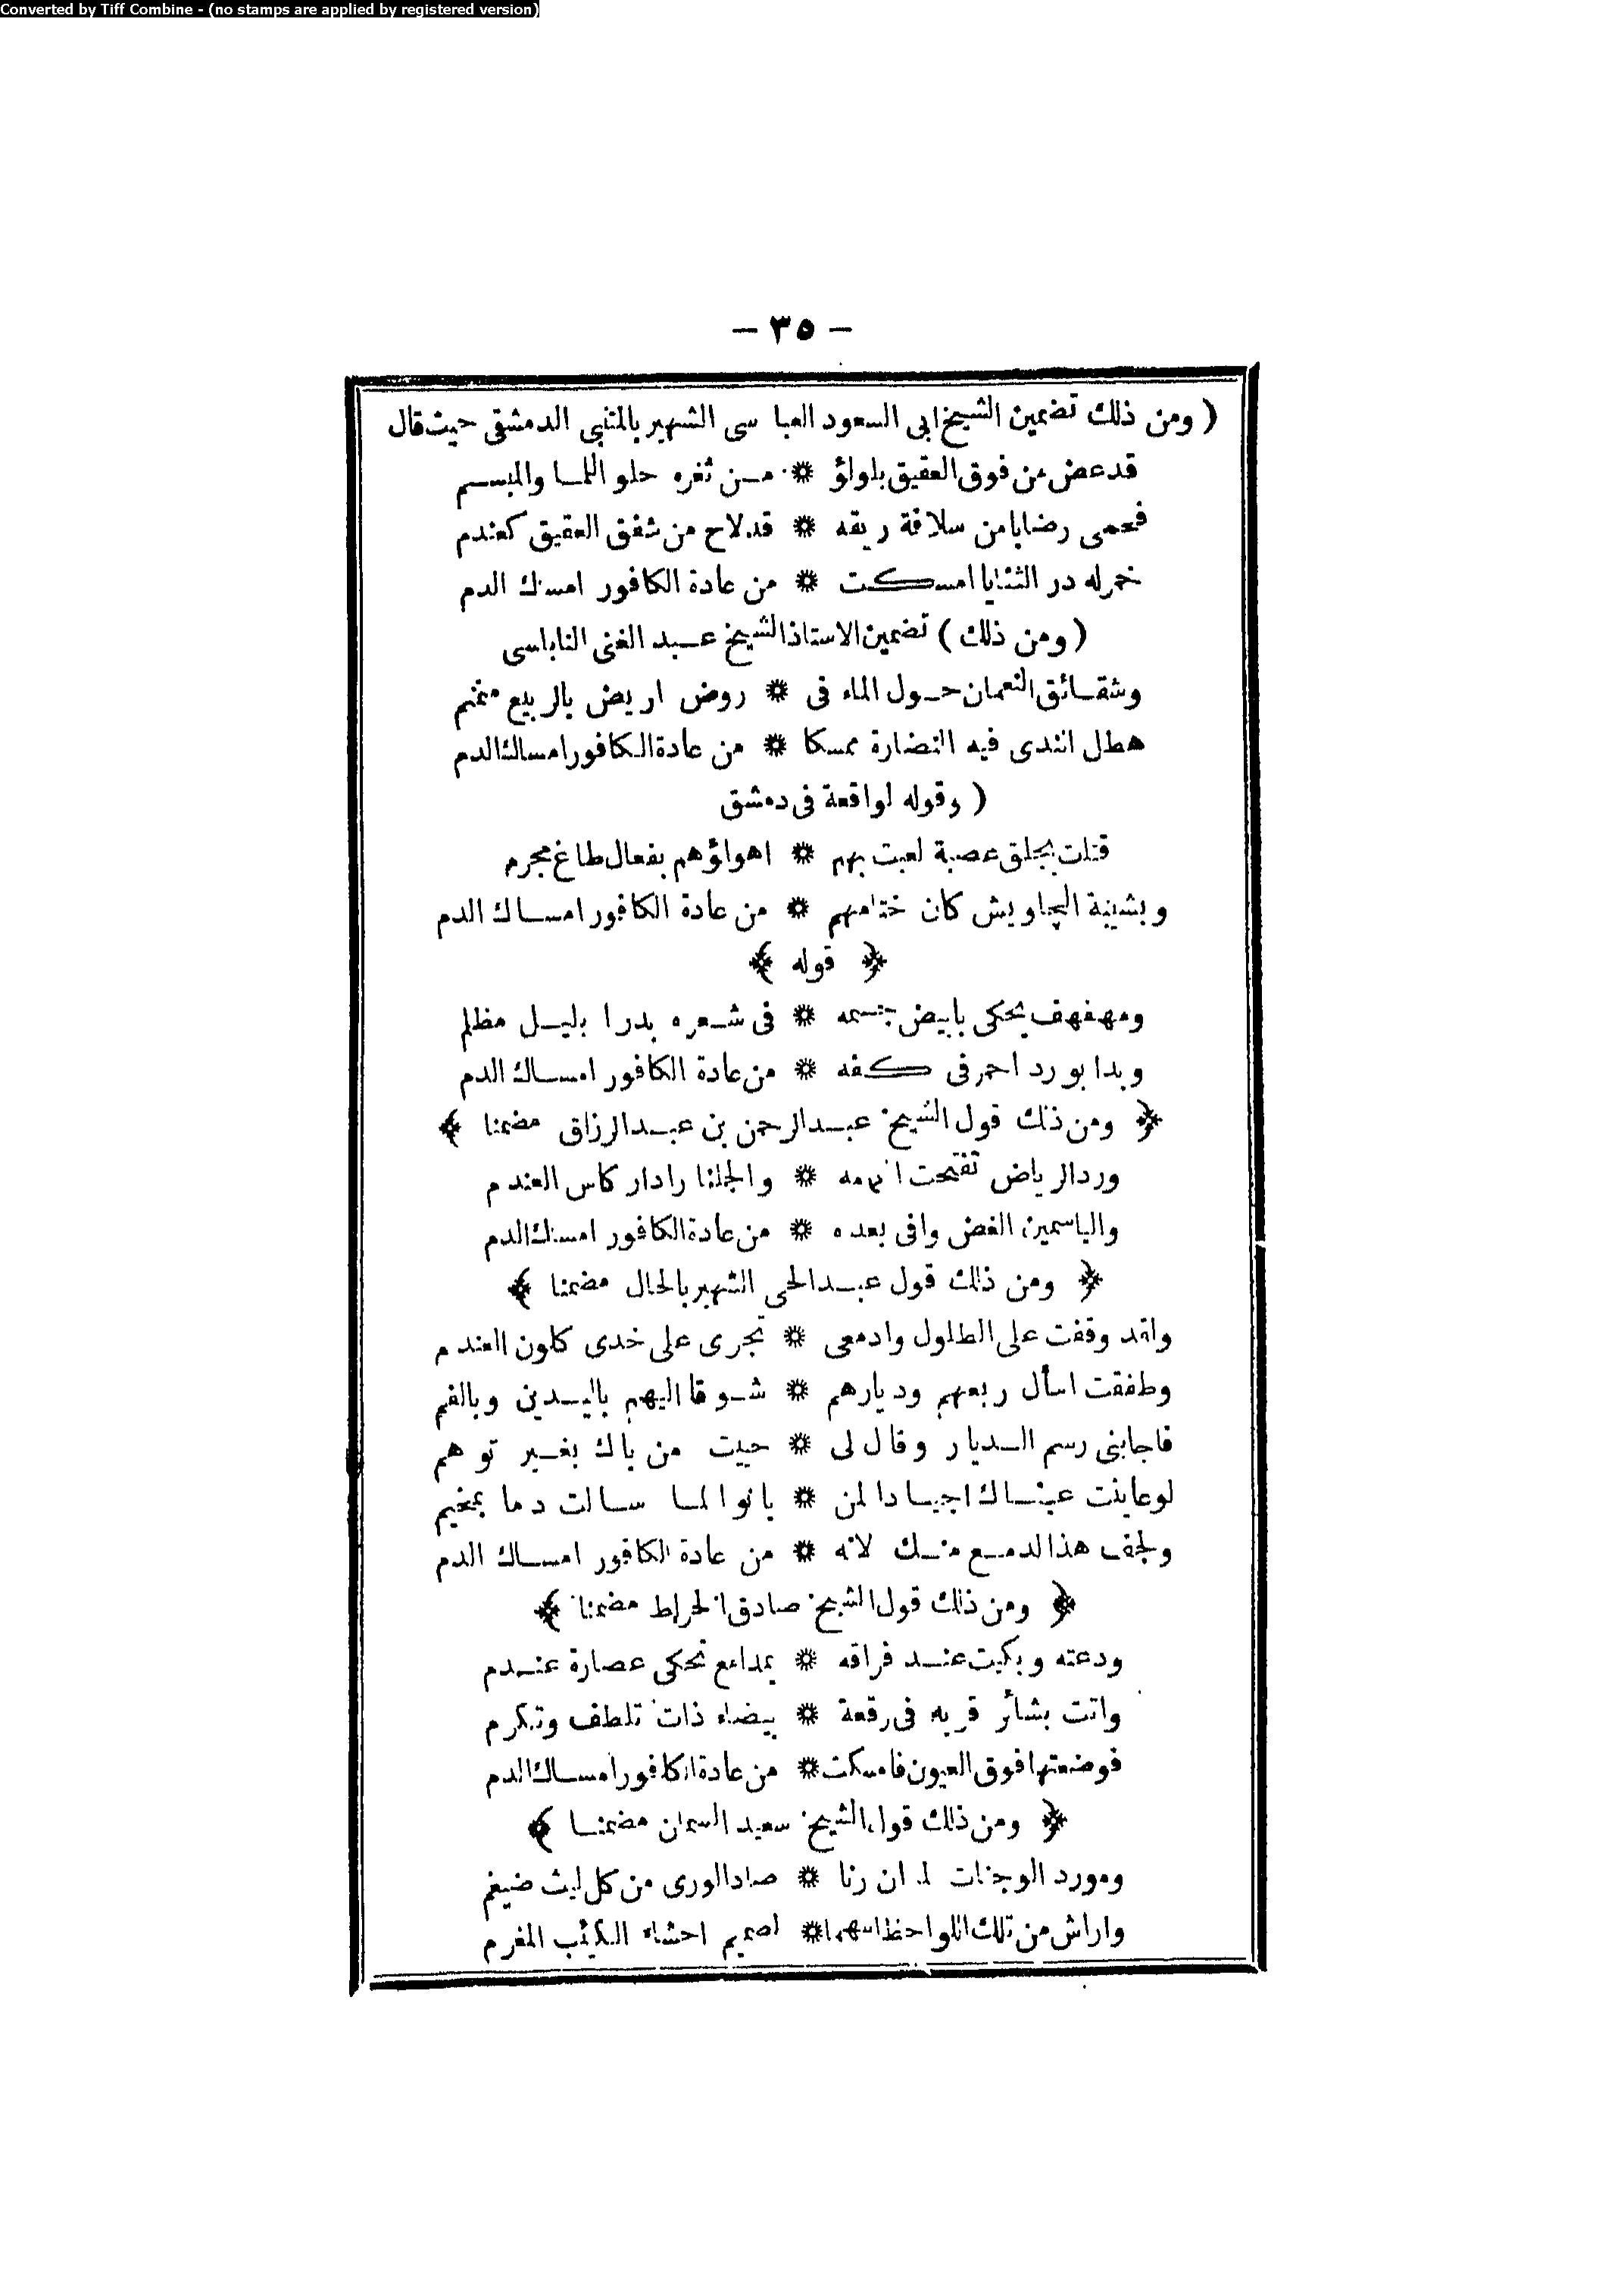 Converted by Tiff Combine - (no stamps are applied by registered version)
– ٣٥ –
( ومن ذلك تضمين الشيخ ابى السعود العبا سى الشهير بالمتنبى الدمشقى حيث قال
قد عض من فوق العقيق بلولؤ * من ثغره حلو اللما والمبسم
فحمى رضابا من سلافة ريقه * قد لاح من شفق العقيق كعندم
خمر له در الثنايا امسكت * من عادة الكافور امساك الدم
( ومن ذلك ) تضمين الاستاذ الشيخ عبد الغنى النابلسى
وشقائق النعمان حول الماء فى * روض اريض بالربيع منمنم
هطل الندى فيه النضارة ممسكا * من عادة الكافور امساك الدم
( وقوله لواقعة فى دمشق
قتلت بجلق عصبة لعبت بهم * اهواؤهم بفعال طاغ مجرم
وبشيبة الجاويش كان ختامهم * من عادة الكافور امساك الدم
﴿ قوله ﴾
ومهفهف يحكى بابيض جسمه * فى شعره بدرا بليل مظلم
وبدا بورد احمر فى كفه * من عادة الكافور امساك الدم
﴿ ومن ذلك قول الشيخ عبد الرحمن بن عبد الرزاق مضمنا ﴾
ورد الرياض تفتحت * والجلنا رادار كاس العندم
والياسمين الغض وافى بعده * من عادة الكافور امساك الدم
﴿ ومن ذلك قول عبد الحى الشهير بالخال مضمنا ﴾
ولقد وقفت على الطلول وادمعى * تجرى على خدى كلون العندم
وطفقت اسأل ربعهم وديارهم * شوقا اليهم باليدين وبالفم
فاجابنى رسم الديار وقال لى * حييت من باك بغير توهم
لو عاينت عيناك اجيادا لمن * بانوا لما سالت دما بمخيم
ولجف هذا الدمع منك لانه * من عادة الكافور امساك الدم
﴿ ومن ذلك قول الشيخ صادق الخراط مضمنا ﴾
ودعته وبكيت عند فراقه * بمدامع تحكى عصارة عندم
واتت بشائر قربه فى رقعة * بيضاء ذات تلطف وتكرم
فوضعتها فوق العيون فامسكت * من عادة الكافور امساك الدم
﴿ ومن ذلك قول الشيخ سعيد السمان مضمنا ﴾
ومورد الوجنات لما ان رنا * صاد الورى من كل ليث ضيغم
واراش من تلك اللواحظ اسهما * لصميم احشاء الكئيب المغرم